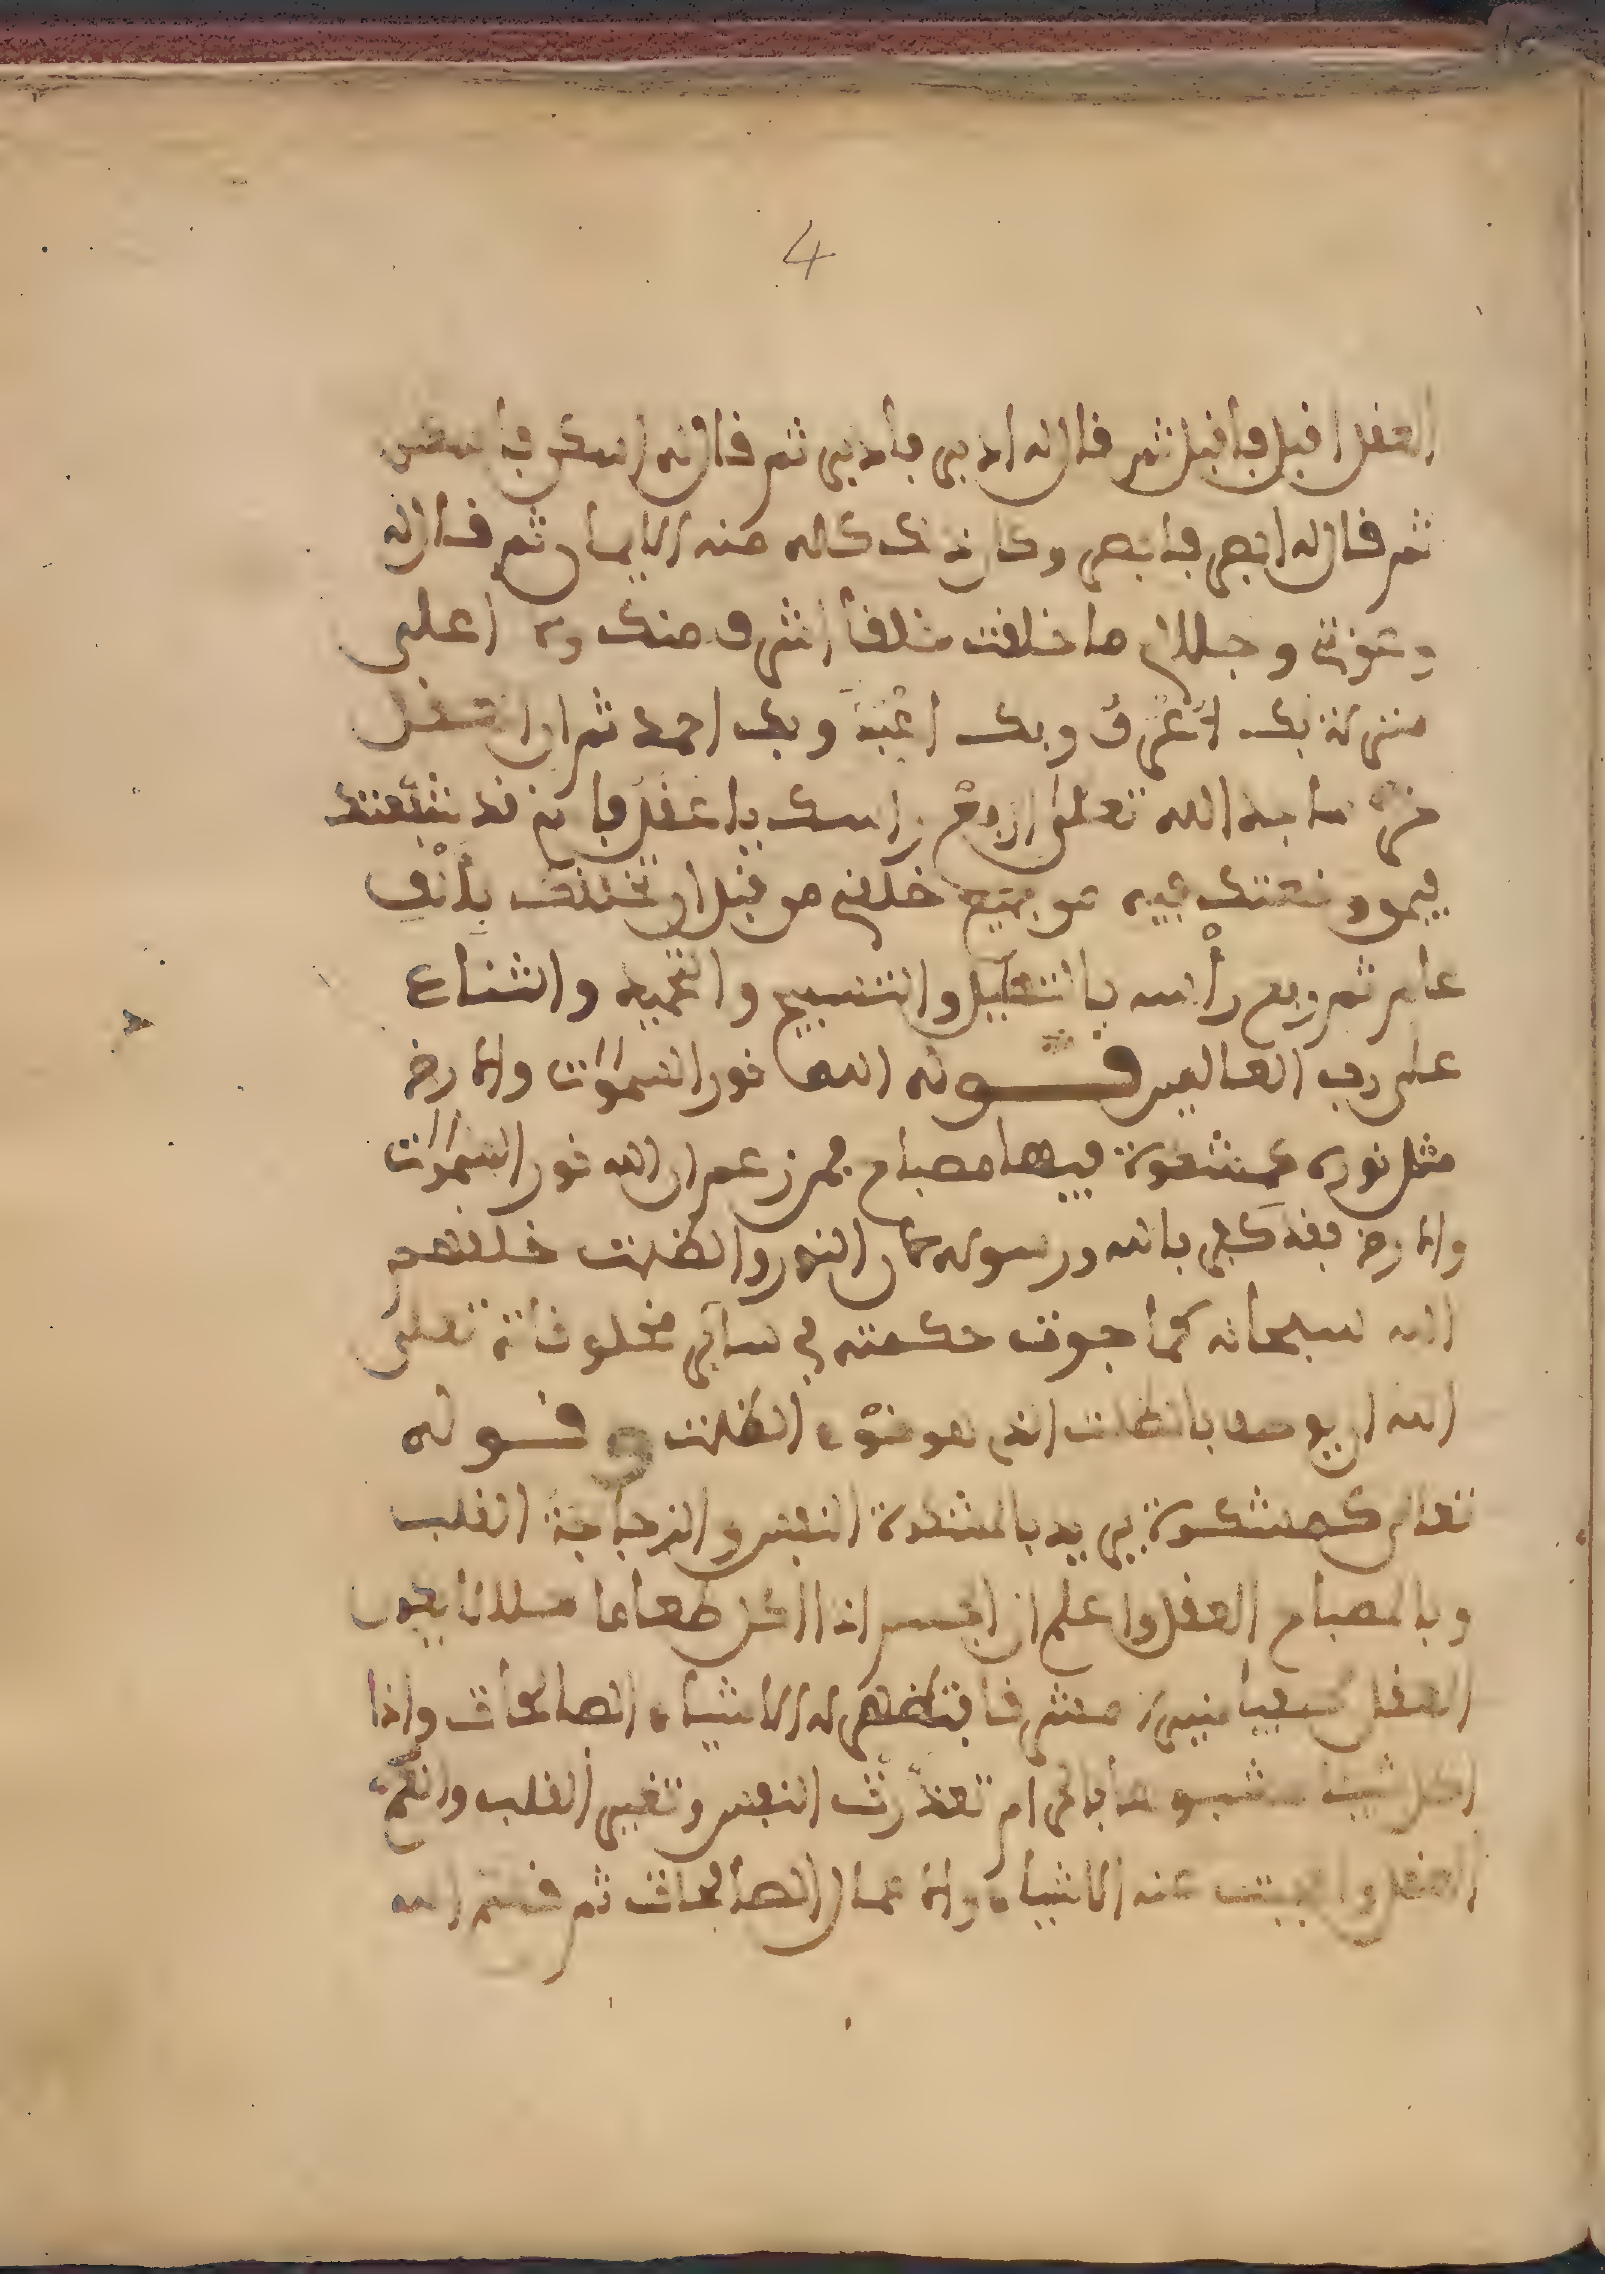 4
العقل اقبل فأقبل ثم قال له ادبر فأدبر ثم قال له اسكن فأسكن
ثم قال له ابصر فابصر وكان ذلك كله منه الايمان ثم قال له
وعزتي وجلالي ما خلقت خلقا أشرف منك ولا اعلى
منزلة بك أُعْرَفُ وبك اعْبَدُ وبك احمد ثم ان العقل
خرّ ساجدا لله تعلى ارفع راسك يا عقل فاني قد شفعتك
فيمن جميع خلقي من قبل ان تخلق بأَلْفِ
عام ثم رفع رأْسه بالتهليل والتسبيح والتحميد والثناء
على رب العالمين قوله الله نور السموات والارض
مثل نوره كمشكوة فيها مصباح فمن زعم ان الله نور السموات
والارض فقد كفر بالله ورسوله كان النور والظلمت خلقهم
الله سبحانه كما جرت حكمته في سائر مخلوقاته تعلى
الله ان يوصف بالظلمت الذي هو ضوء الظلمت وقوله
تعلى كمشكوة يريد بالمشكوة النفس والزجاجة القلب
وبالمصباح العقل واعلم ان الجسم اذا اكل طعاما حلالا يكون
العقل صفيا منيرا مشرقا فتظهر له الاشياء الصالحات واذا
اكل شيئا مشبوها بالحرام تعذّرت النفس وتغير القلب وانكم
العقل واحجبت عنه الاشياء والاعمال الصالحات ثم قسم الله